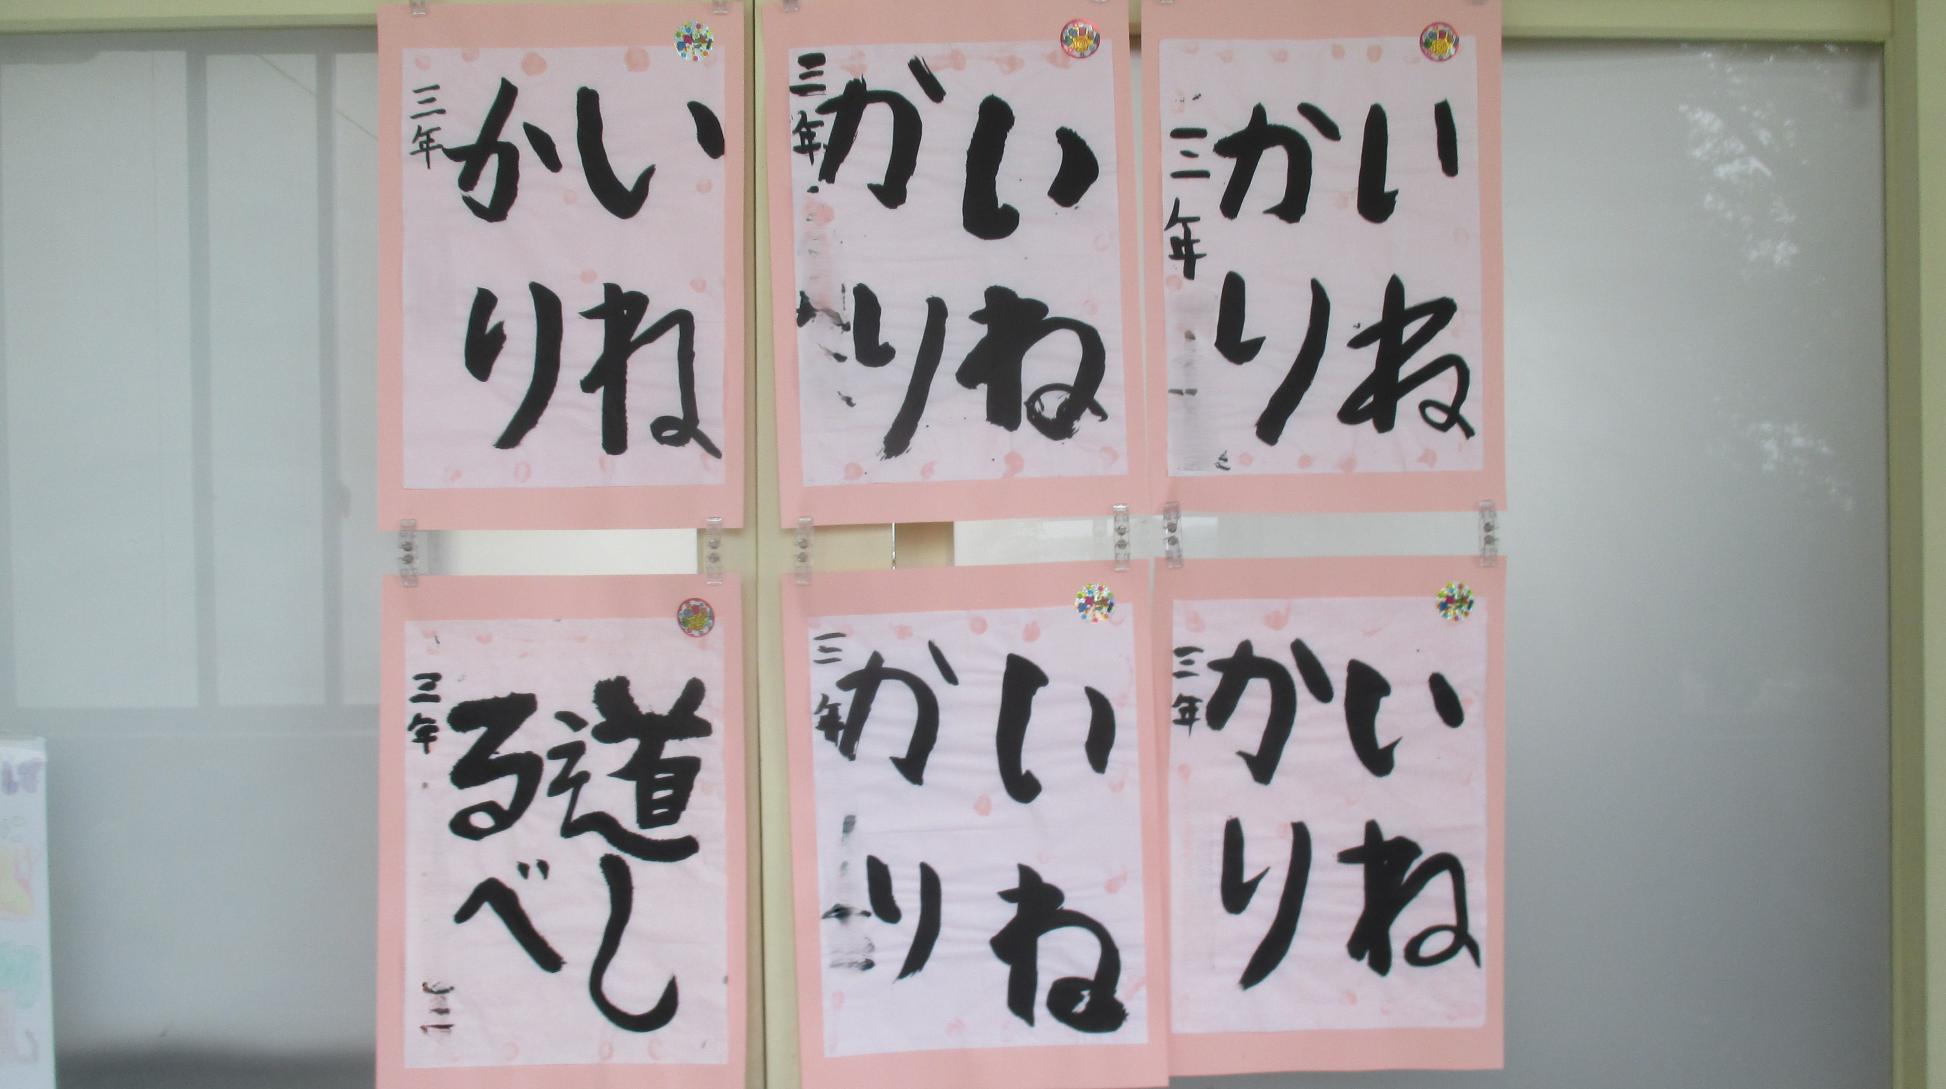 いね
かり
三年
いね
かり
三年
いね
かり
三年
道し
るべ
三年
いね
かり
三年
いね
かり
三年